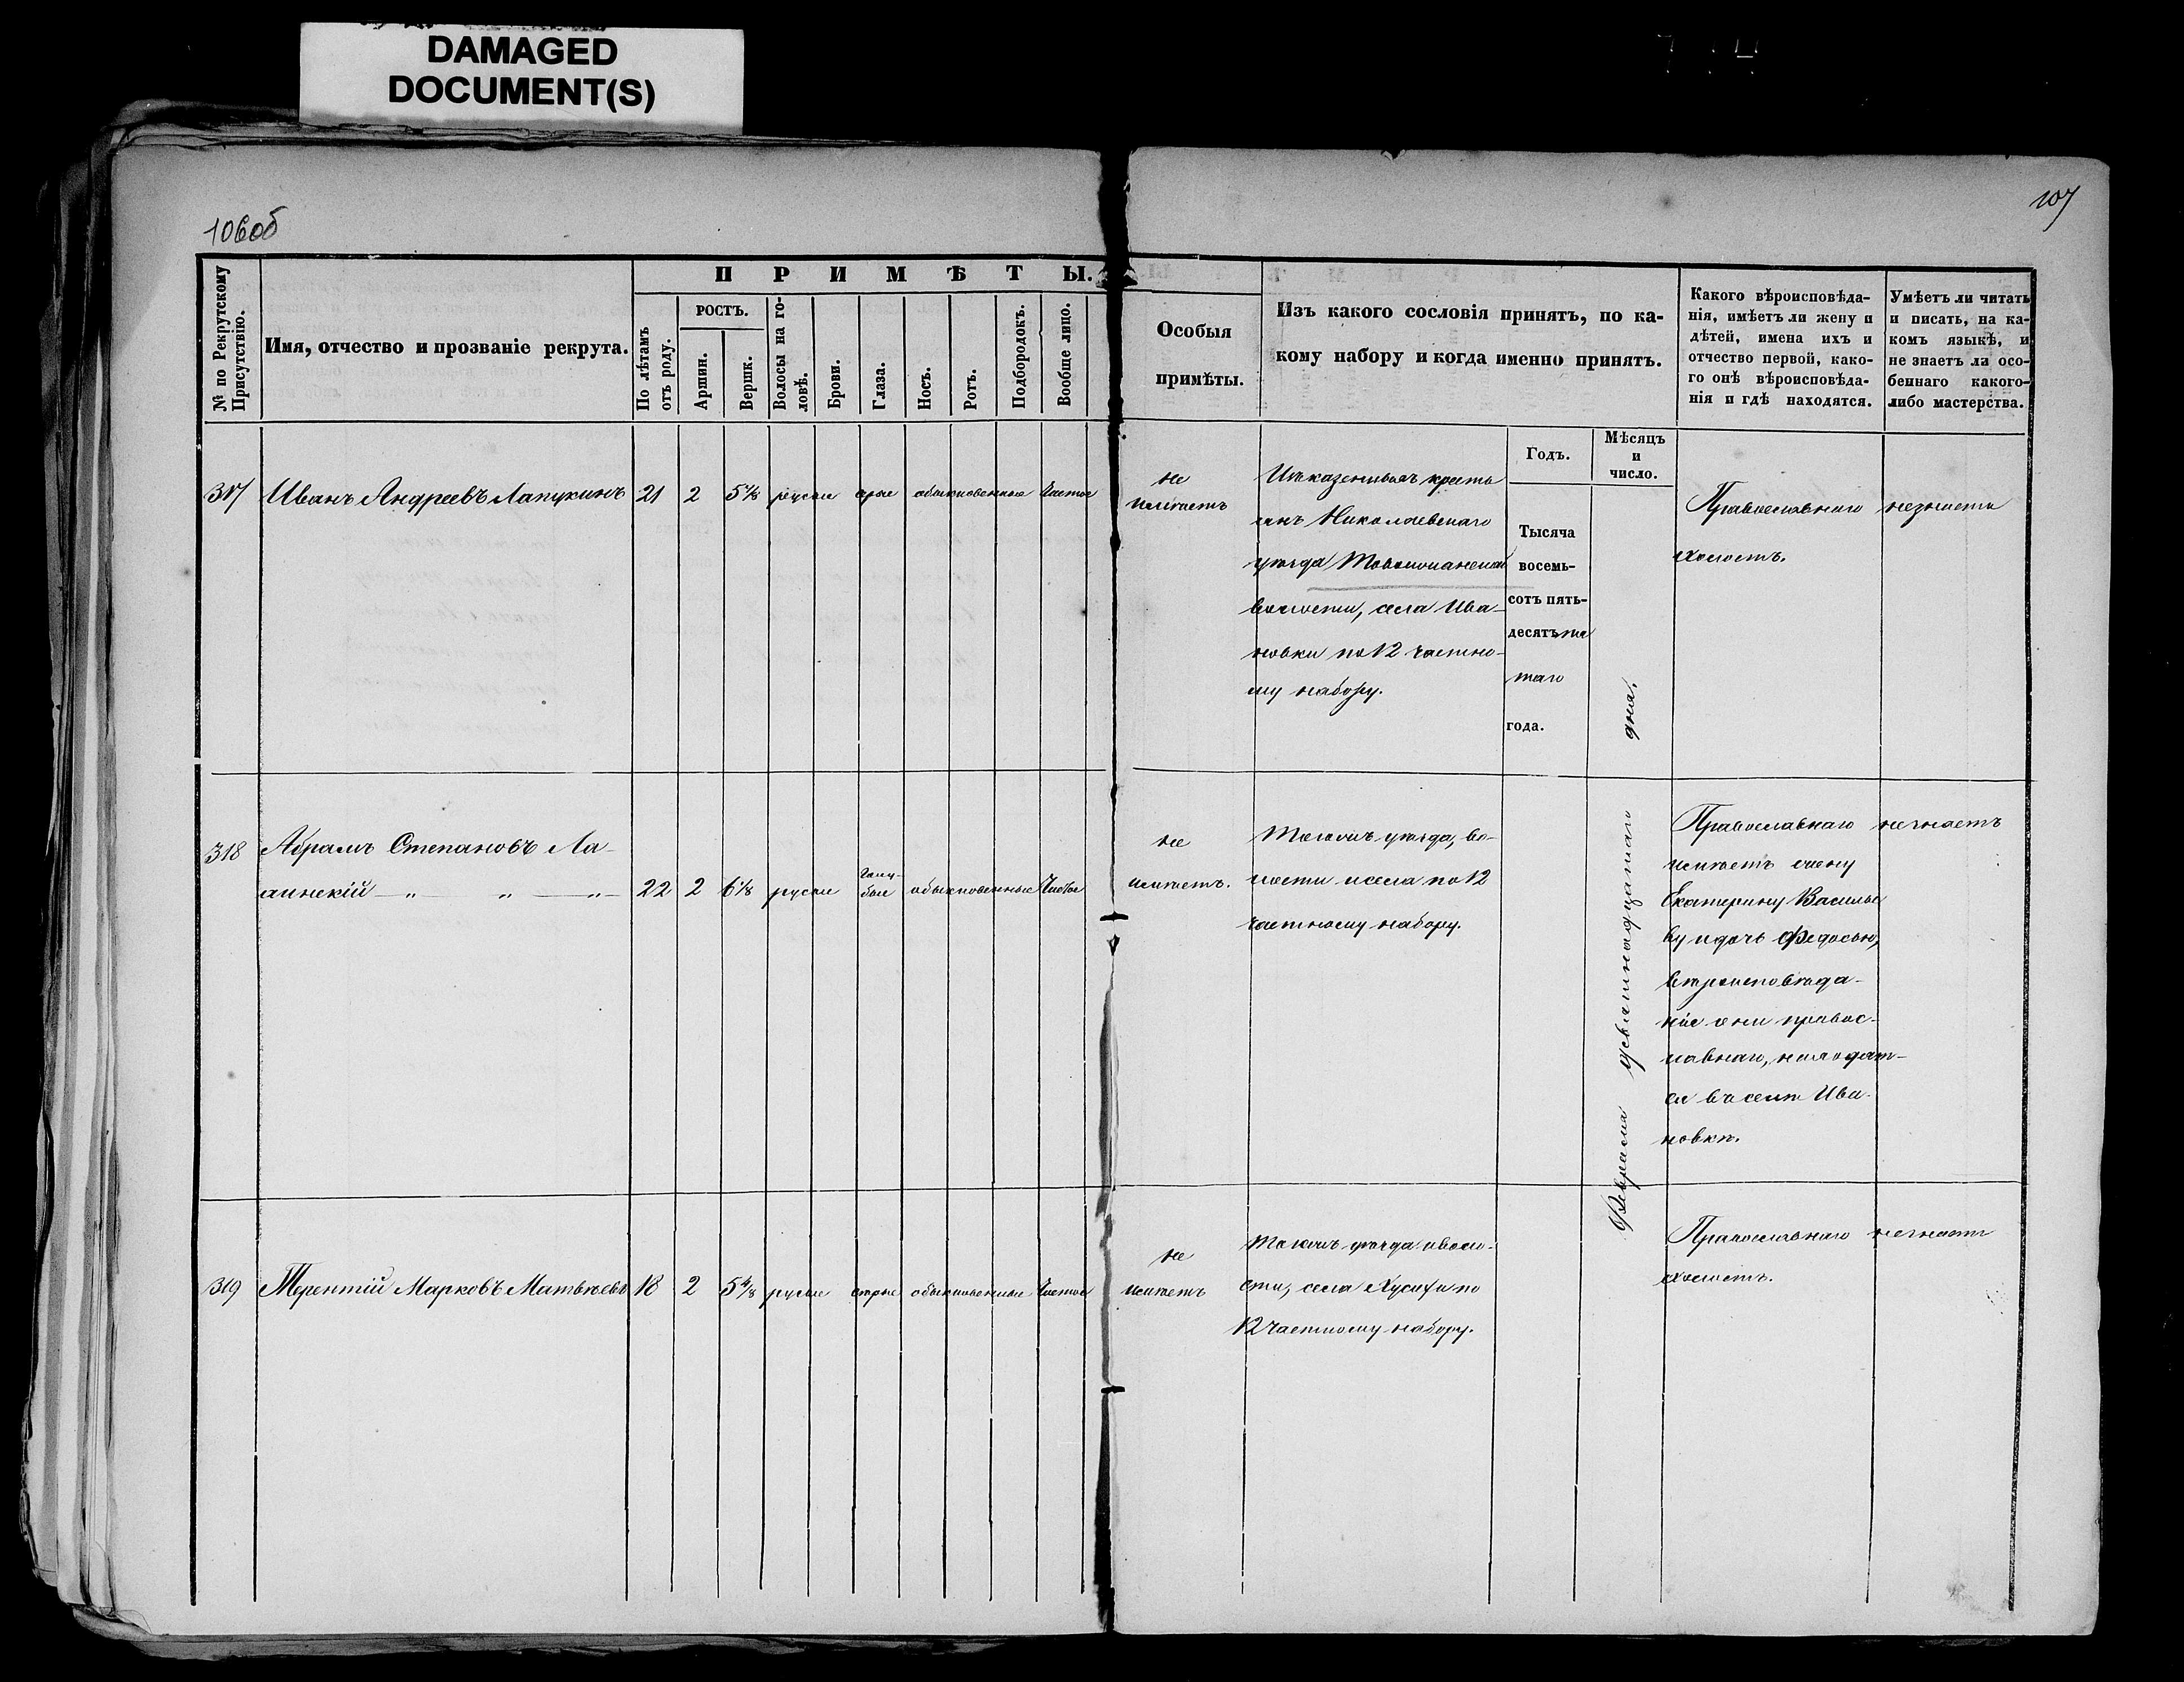 DAMAGED
DOCUMENT(S)
106об
107
№ по Рекрутскому
Присутствію.
Имя, отчество и прозваніе рекрута.
ПРИМѢТЫ.
По лѣтамъ
отъ роду.
РОСТЪ.
Аршин.
Вершк.
Волосы на го-
ловѣ.
Брови.
Глаза.
Носъ.
Ротъ.
Подбородокъ.
Вообще лицо.
Особыя
примѣты.
Изъ какого сословія принятъ, по ка-
кому набору и когда именно принятъ.
Какого вѣроисповѣда-
нія, имѣетъ ли жену и
дѣтей, имена ихъ и
отчество первой, како-
го онѣ вѣроисповѣда-
нія и гдѣ находятся.
Умѣетъ ли читать
и писать, на ка-
комъ языкѣ, и
не знаетъ ли осо-
беннаго какого-
либо мастерства.
Годъ.
Мѣсяцъ
и
число.
317 Иванъ Андреевъ Лапукинъ 21 2 русые серые обыкновенные Чистое
не
имѣетъ
Изъ казенныхъ кресть
янъ Николаевскаго
уѣзда
волости, села Ива-
новки по 12 частно-
му набору.
Тысяча
восемь-
сотъ пять-
десятъ пя
таго
года.
Февраля девятнадцатаго дня.
Православнаго
холостъ.
незнаетъ
318 Абрамъ Степановъ Ла-
" " " 22 2 6 1/8 русые голу-
бые обыкновенные Чистое
не
имѣетъ.
Тогожъ уѣзда, во-
лости и села по 12
частному набору.
Православнаго
имѣетъ жену
Екатерину Василье
ву и дочь Федосью,
вѣроисповѣда-
нія они правос-
лавнаго, находят-
ся въ селѣ Ива-
новкѣ.
незнаетъ
319 Терентій Марковъ Матвѣевъ 18 2 русые сѣрые обыкновенные Чистое
не
имѣетъ
Тогожъ уѣзда и воло-
сти, села по
12 частному набору.
Православнаго
холостъ.
незнаетъ